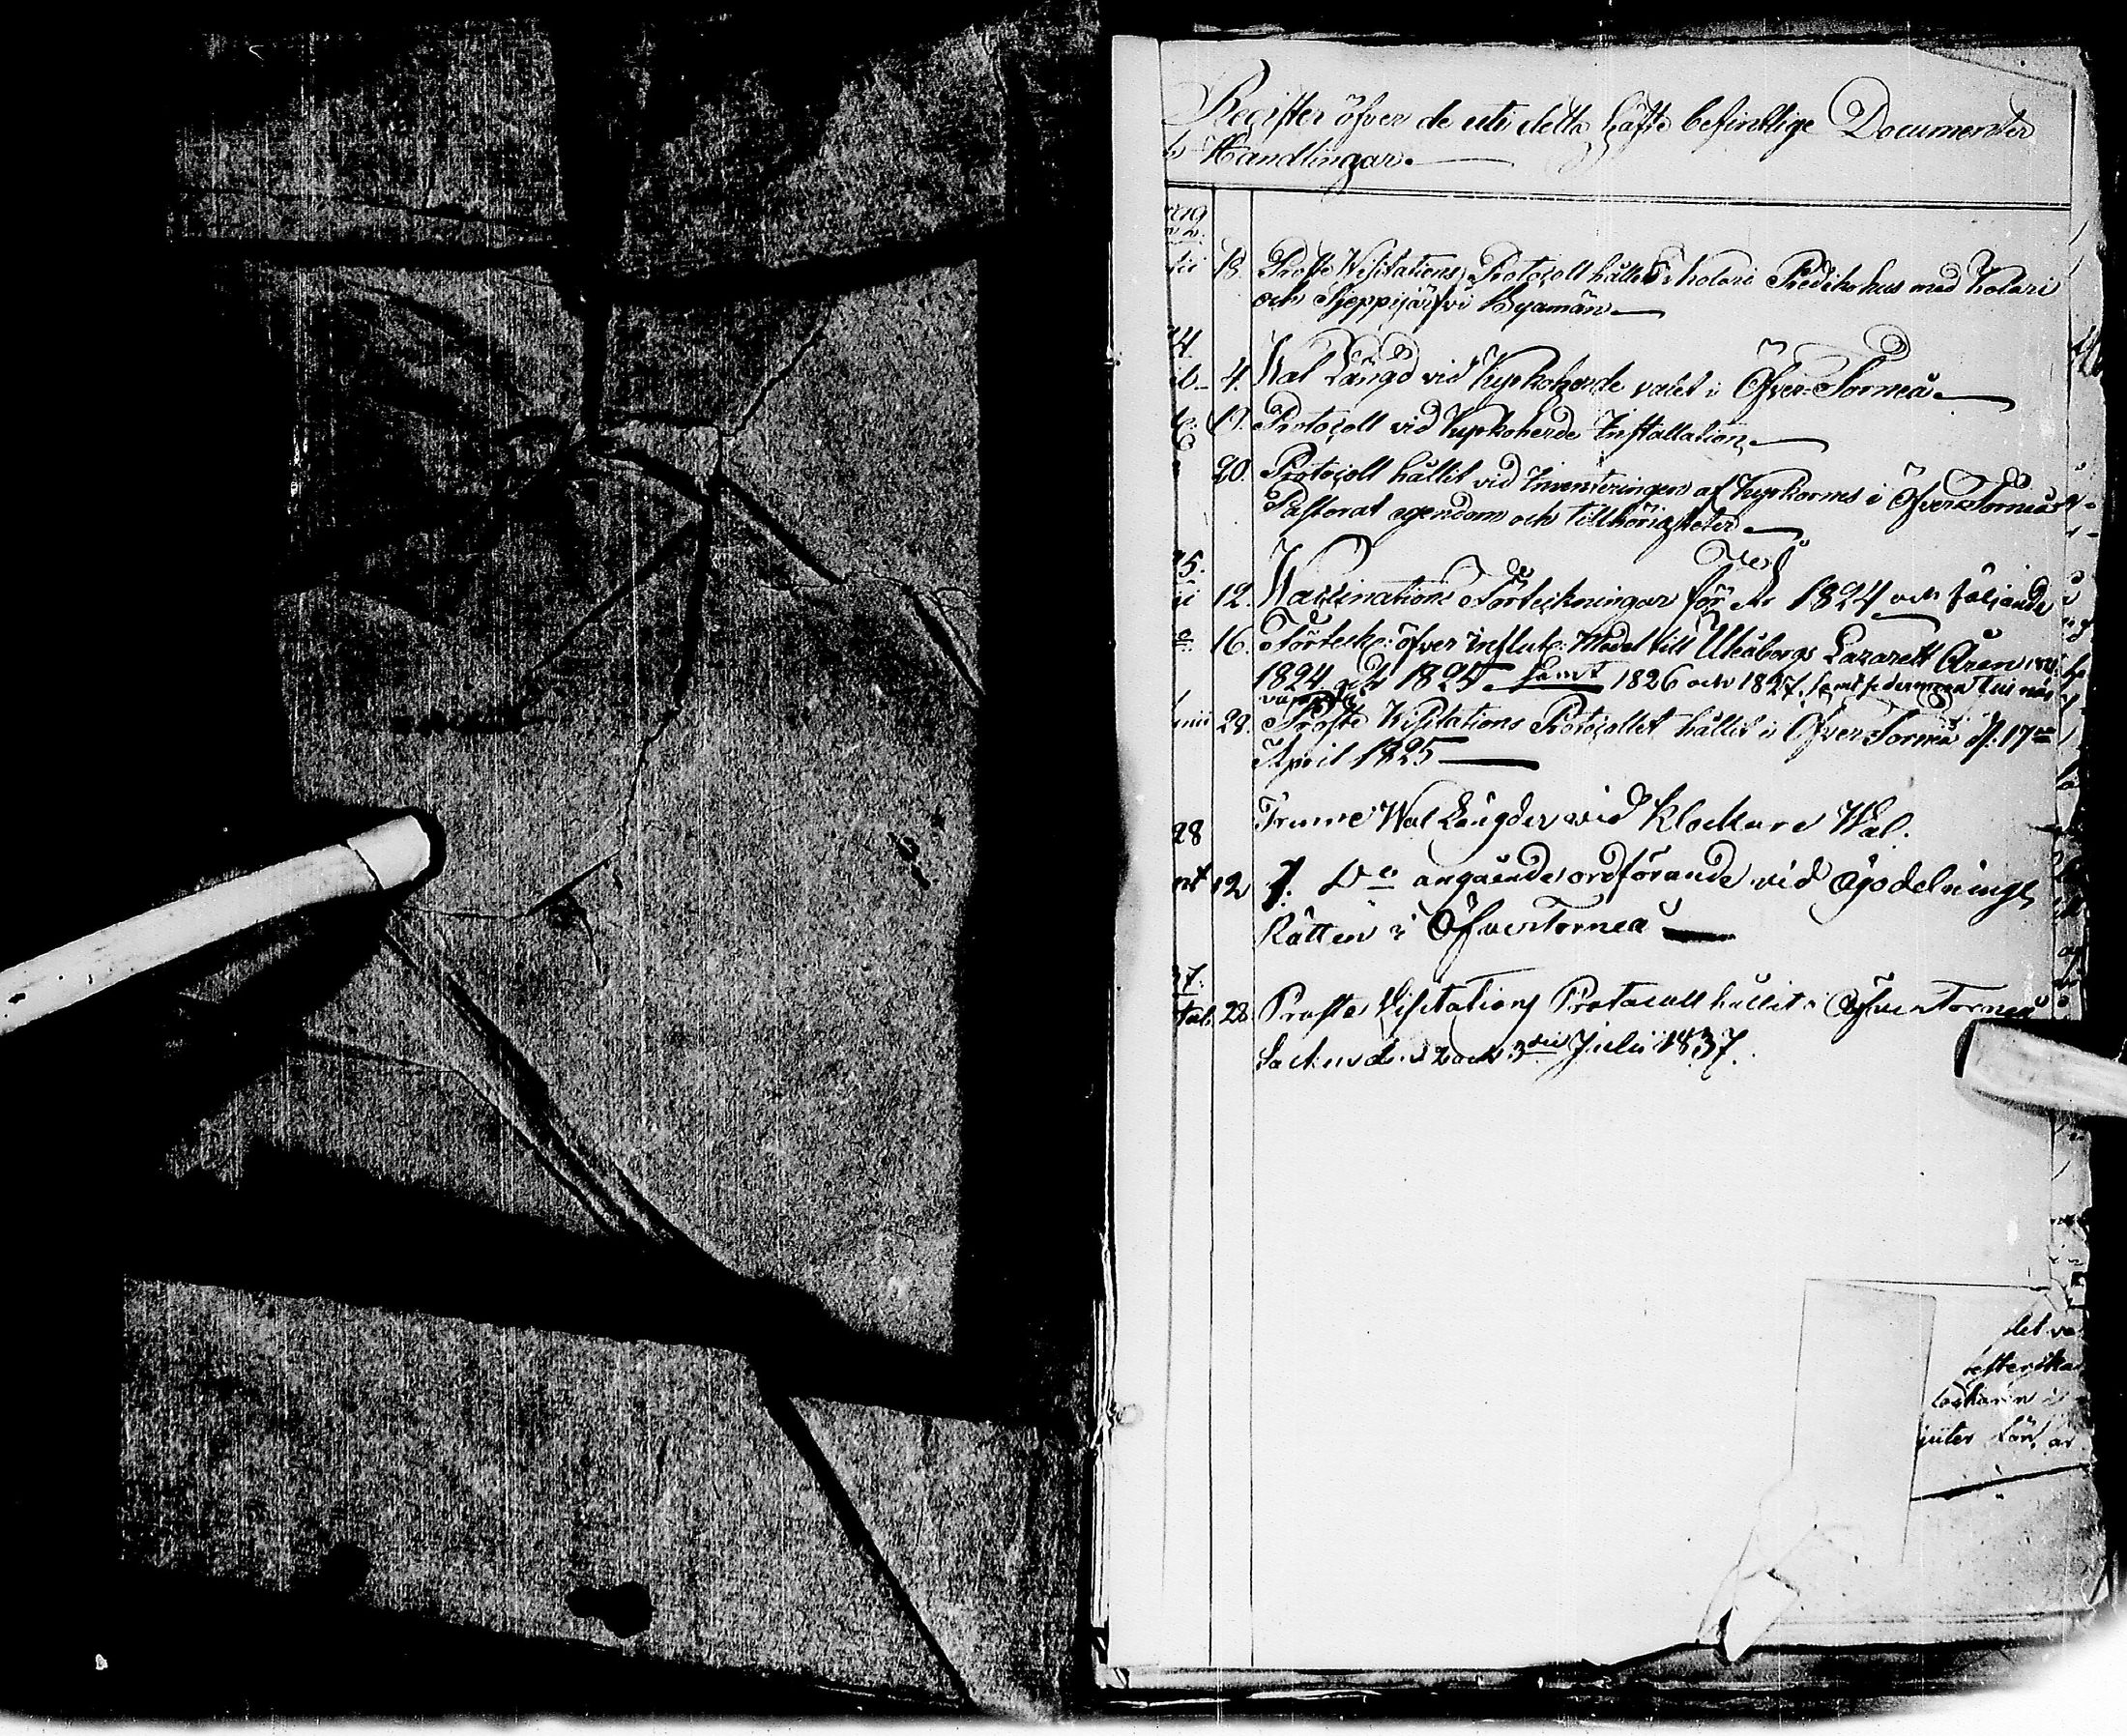 Register öfver de uti detta häfte befintlige Documenter
Handlingar.
18. Prosts Visitations Protocoll hållit i Kolari Predikohus med Kolari
och Sieppijärfvi Byamän
4. Wal Längd vid Kyrkoherde valet i Öfver-Torneå
19. Protocoll vid Kyrkoherde Installation
20. Protocoll hållit vid Inventeringen af Kyrkornes i Öfver-Torneå
Pastorat egendom och tillhörigheter
12. Vaccinations Förteckningar för År 1824 och följande
16. Förteckn: öfver influt: Medel till Uleåborgs Lazarett Åren
1824 och 1825 samt 1826 och 1827.
29. Prosts Visitations Protocollet hållit i Öfver Torneå d. 17de
April 1825
28 Trenne Wal Längder vid Klockare Wal.
12 1. Do angående ordförande vid Ägodelnings
Rätten i Öfver Torneå
28 Prosts Visitations Protocoll hållit i Öfver Torneå
Socken d. 2 och 3die Julii 1837.